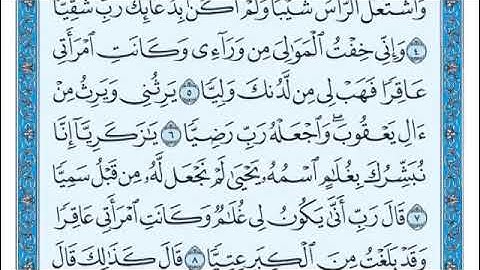 وَٱشْتَعَلَ ٱلرَّأْسُ شَيْبًا وَلَمْ أَكُنۢ بِدُعَآئِكَ رَبِّ شَقِيًّا
٤ وَإِنِّي خِفْتُ ٱلْمَوَٰلِيَ مِن وَرَآءِي وَكَانَتِ ٱمْرَأَتِي
عَاقِرًا فَهَبْ لِي مِن لَّدُنكَ وَلِيًّا ٥ يَرِثُنِي وَيَرِثُ مِنْ
ءَالِ يَعْقُوبَۖ وَٱجْعَلْهُ رَبِّ رَضِيًّا ٦ يَٰزَكَرِيَّآ إِنَّا
نُبَشِّرُكَ بِغُلَٰمٍ ٱسْمُهُۥ يَحْيَىٰ لَمْ نَجْعَل لَّهُۥ مِن قَبْلُ سَمِيًّا
٧ قَالَ رَبِّ أَنَّىٰ يَكُونُ لِي غُلَٰمٌ وَكَانَتِ ٱمْرَأَتِي عَاقِرًا
وَقَدْ بَلَغْتُ مِنَ ٱلْكِبَرِ عِتِيًّا ٨ قَالَ كَذَٰلِكَ قَالَ